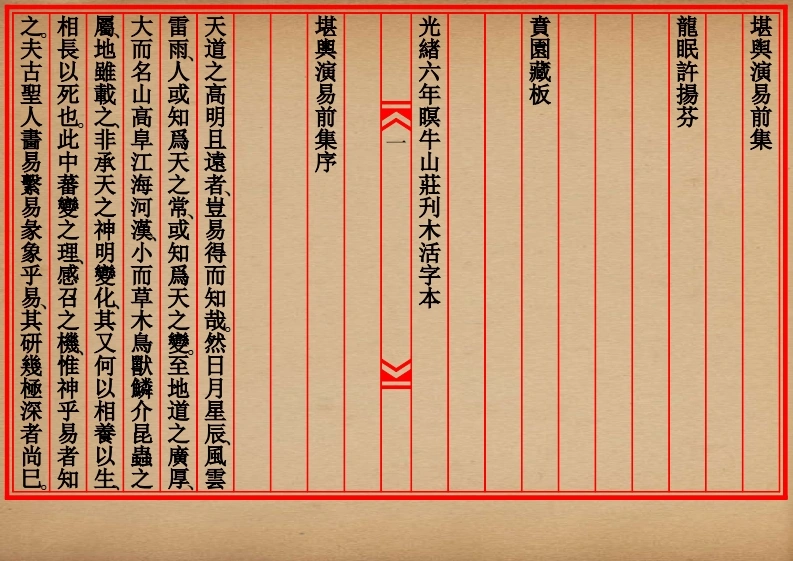 堪輿演易前集
龍眠許揚芬
賁園藏板
光緒六年暝牛山莊刋木活字本
一
堪輿演易前集序
天道之高明且遠者、豈易得而知哉。然日月星辰、風雲
雷雨、人或知爲天之常、或知爲天之變。至地道之廣厚、
大而名山高阜江海河漢、小而草木鳥獸鱗介昆蟲之
屬、地雖載之、非承天之神明變化、其又何以相養以生、
相長以死也。此中蕃變之理、感召之機、惟神乎易者知
之。夫古聖人畫易繫易彖象乎易、其研幾極深者尚巳。